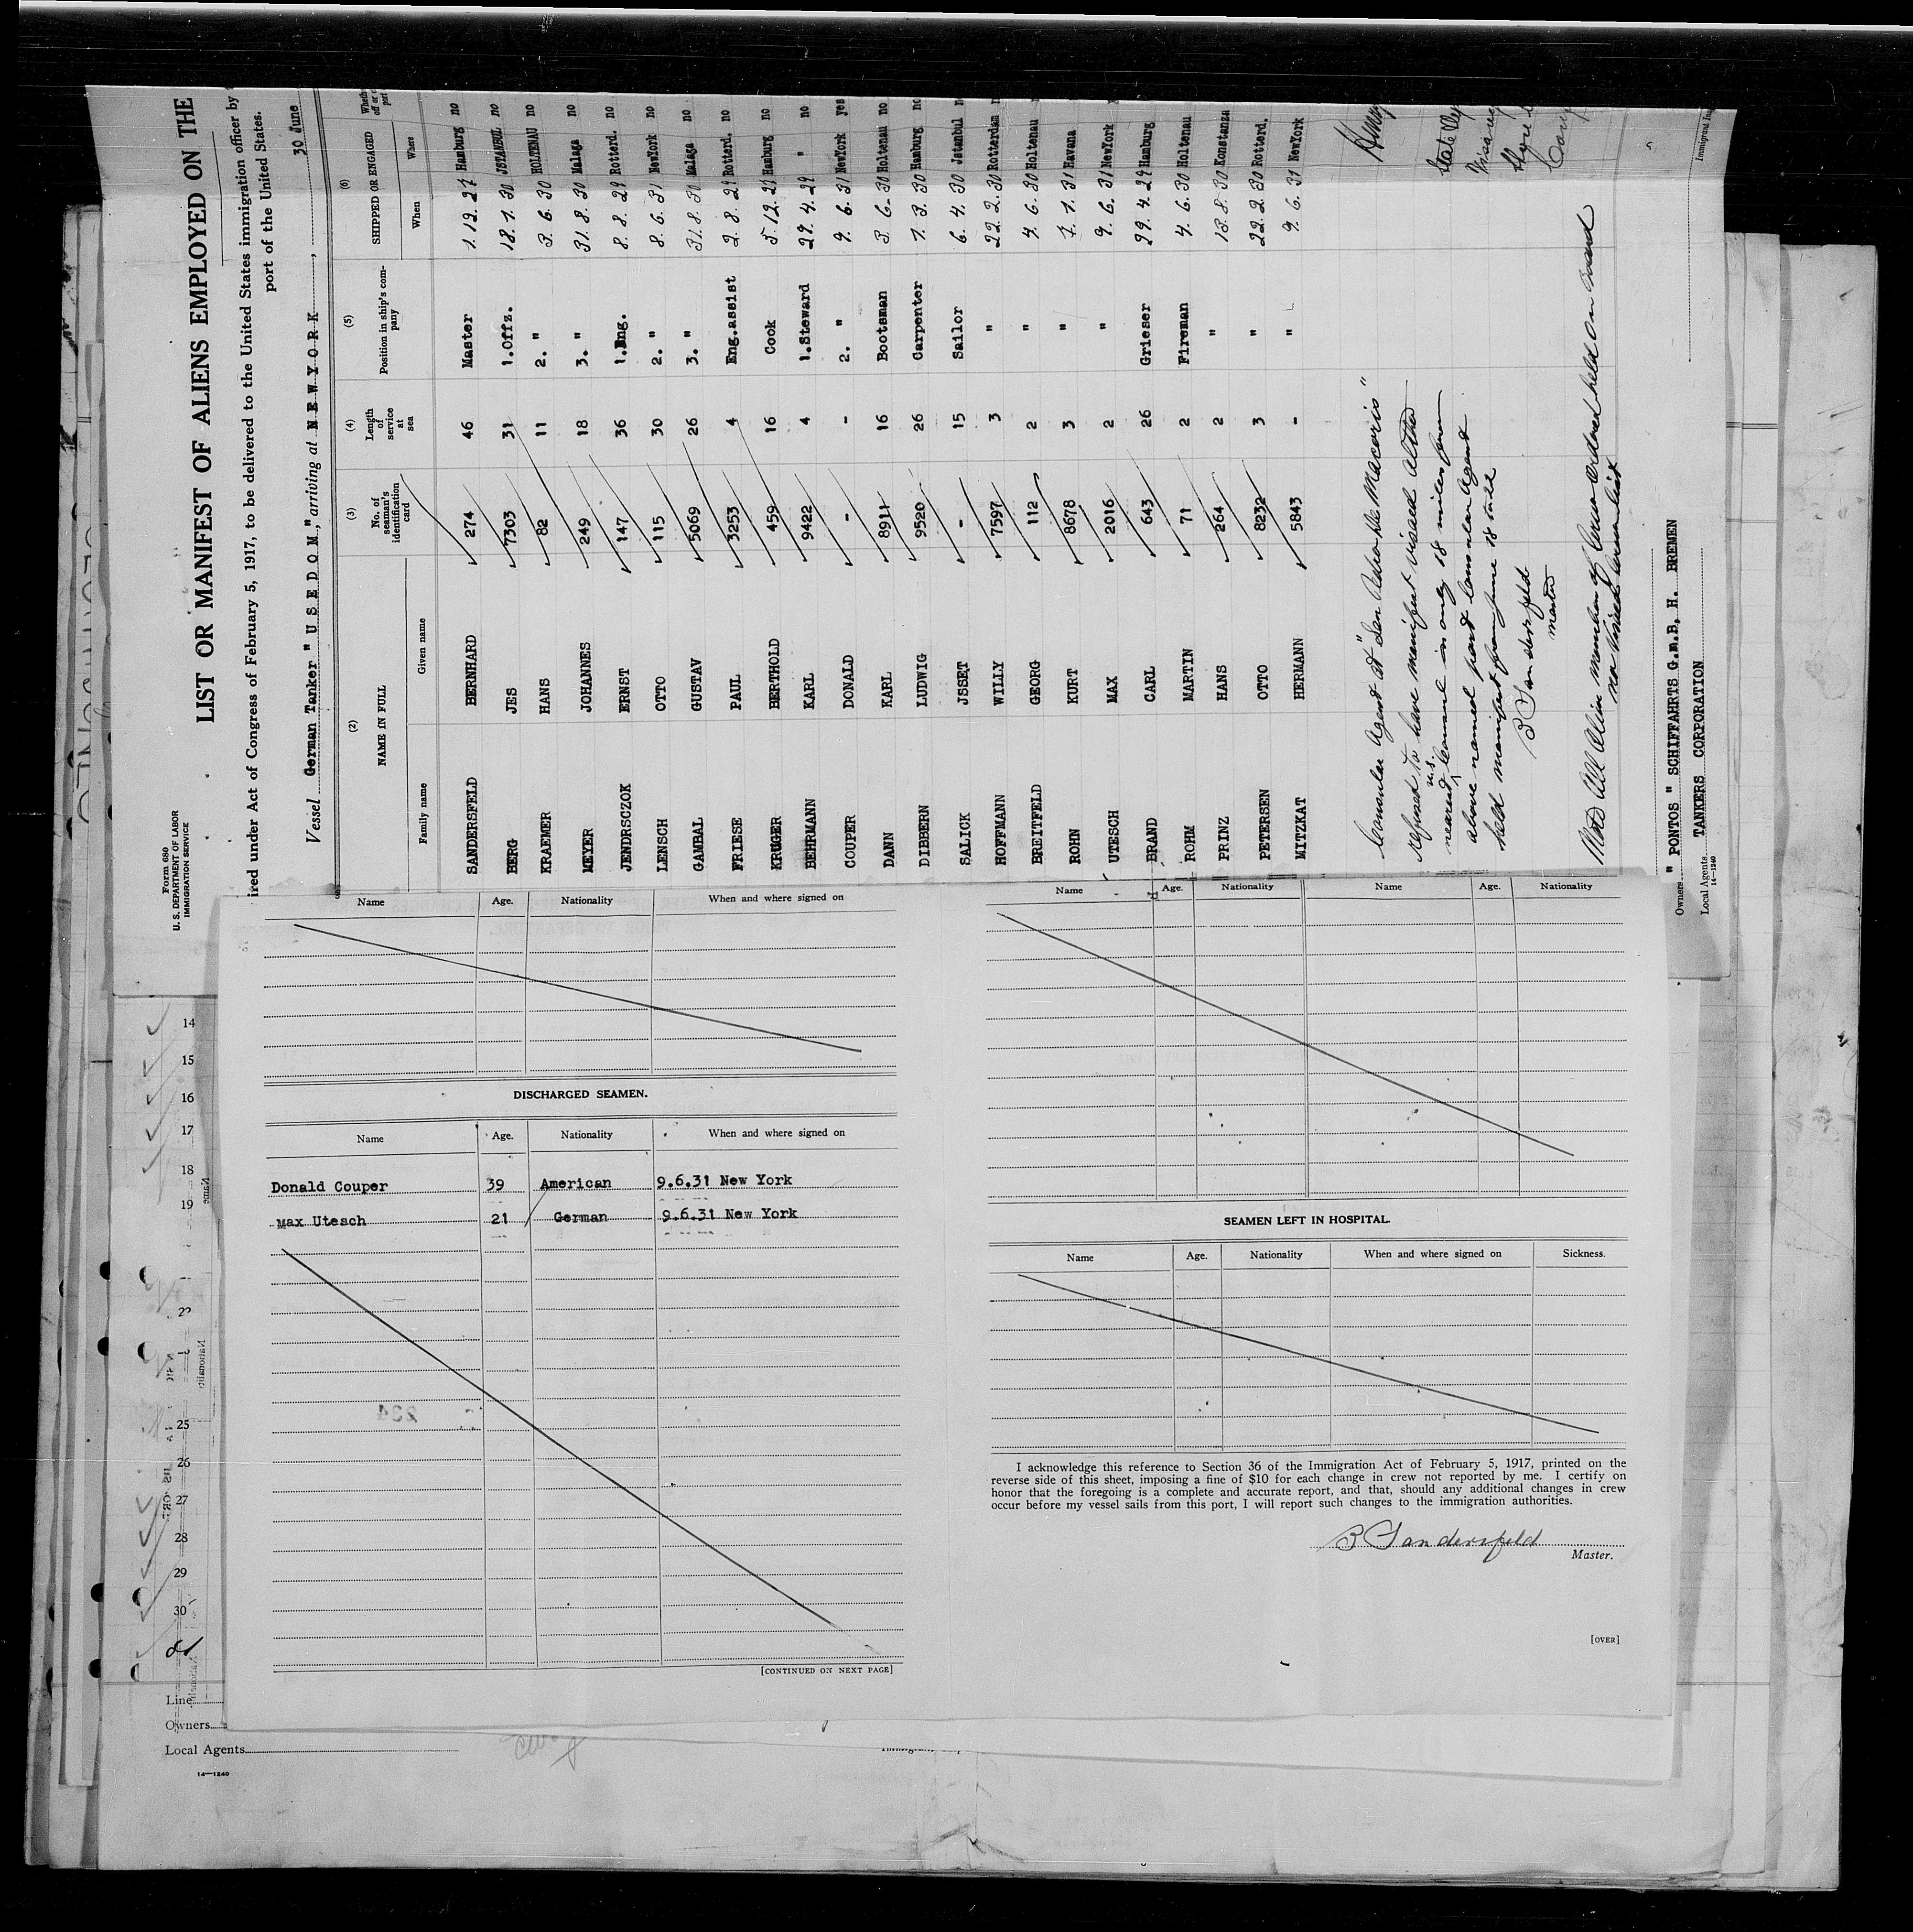 Form 680
U. S. DEPARTMENT OF LABOR
IMMIGRATION SERVICE
LIST OR MANIFEST OF ALIENS EMPLOYED ON THE
ired under Act of Congress of February 5, 1917, to be delivered to the United States immigration officer by
port of the United States.
Vessel German Tanker " U S E D O M ", arriving at N E W Y O R K, 30 June
(2) (3) (4) (5) (6)
NAME IN FULL No. of seaman's identification card Length of service at sea Position in ship's company SHIPPED OR ENGAGED
Family name Given name When Where
SANDERSFELD BERNHARD 274 46 Master 1.12.27 Hamburg no
BERG JES 7303 31 1.Offz. 18.1.30 JSTAMBUL no
KRAEMER HANS 82 11 2. " 3.6.30 HOLTENAU no
MEYER JOHANNES 249 18 3. " 31.8.30 Malaga no
JENDRSCZOK ERNST 147 36 1.Eng. 8.8.29 Rotterd. no
LENSCH OTTO 115 30 2. " 8.6.31 NewYork no
GAMBAL GUSTAV 5069 26 3. " 31.8.30 Malaga no
FRIESE PAUL 3253 4 Eng.assist 2.8.29 Rotterd. no
KRUGER BERTHOLD 459 16 Cook 5.12.29 Hamburg no
BEHRMANN KARL 9422 4 1.Steward 29.4.29 " no
COUPER DONALD - - 2. " 9.6.31 NewYork yes
DANN KARL 8911 16 Bootsman 3.6.30 Holtenau no
DIBBERN LUDWIG 9520 26 Carpenter 7.3.30 Hamburg no
SALICK JSSET - 15 Sailor 6.4.30 Jstambul
HOFFMANN WILLY 7597 3 " 22.2.30 Rotterdam
BREITFELD GEORG 112 2 " 4.6.30 Holtenau
ROHN KURT 8678 3 " 7.1.31 Havana
UTESCH MAX 2016 2 " 9.6.31 NewYork
BRAND CARL 643 26 Grieser 29.4.29 Hamburg
ROHM MARTIN 71 2 Fireman 4.6.30 Holtenau
PRINZ HANS 264 2 " 13.8.30 Konstanza
PETERSEN OTTO 8232 3 " 22.2.30 Rotterd.
MITZKAT HERMANN 5843 - " 9.6.31 NewYork
Consular Agent at "San Pedro de Macoris"
refused to have manifest visaed altho
nearest U.S. Consul is only 18 miles from
above named port Consular Agent
held manifest from June 18 to 22
B Sandersfeld
master
Note All Alien members of Crew ordered held on board
no visaed crew list
Owners " PONTOS " SCHIFFAHRTS G.m.B, H. BREMEN
Local Agents TANKERS CORPORATION
14—1240
Name Age. Nationality When and where signed on
DISCHARGED SEAMEN.
Name Age. Nationality When and where signed on
Donald Couper 39 American 9.6.31 New York
Max Utesch 21 German 9.6.31 New York
[CONTINUED ON NEXT PAGE]
Name Age. Nationality Name Age. Nationality
SEAMEN LEFT IN HOSPITAL.
Name Age. Nationality When and where signed on Sickness.
I acknowledge this reference to Section 36 of the Immigration Act of February 5, 1917, printed on the
reverse side of this sheet, imposing a fine of $10 for each change in crew not reported by me. I certify on
honor that the foregoing is a complete and accurate report, and that, should any additional changes in crew
occur before my vessel sails from this port, I will report such changes to the immigration authorities.
B Sandersfeld
Master.
[OVER]
14
15
16
17
18
19
25
26
27
28
29
30
Line
Owners
Local Agents
14—1240